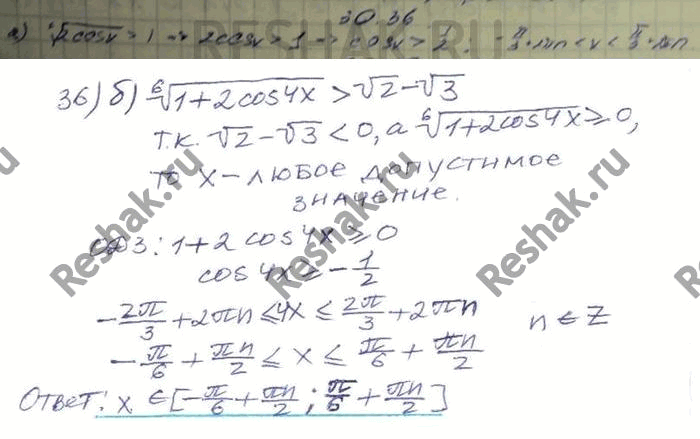 30.36
а) √2cosx > 1 → 2cosx > 1 → cosx > 1/2 ; -π/3 + 2πn < x < π/3 + 2πn
RESHAK.RU
36) б) ⁶√1+2cos4x > √2-√3
т.к. √2-√3 < 0, а ⁶√1+2cos4x ≥ 0,
то x – любое допустимое
значение.
ОДЗ: 1+2cos4x ≥ 0
cos4x ≥ -1/2
-2π/3 + 2πn ≤ 4x ≤ 2π/3 + 2πn n ∈ Z
-π/6 + πn/2 ≤ x ≤ π/6 + πn/2
Ответ: x ∈ [-π/6 + πn/2 ; π/6 + πn/2]
Reshak.ru
Reshak.ru
Reshak.ru